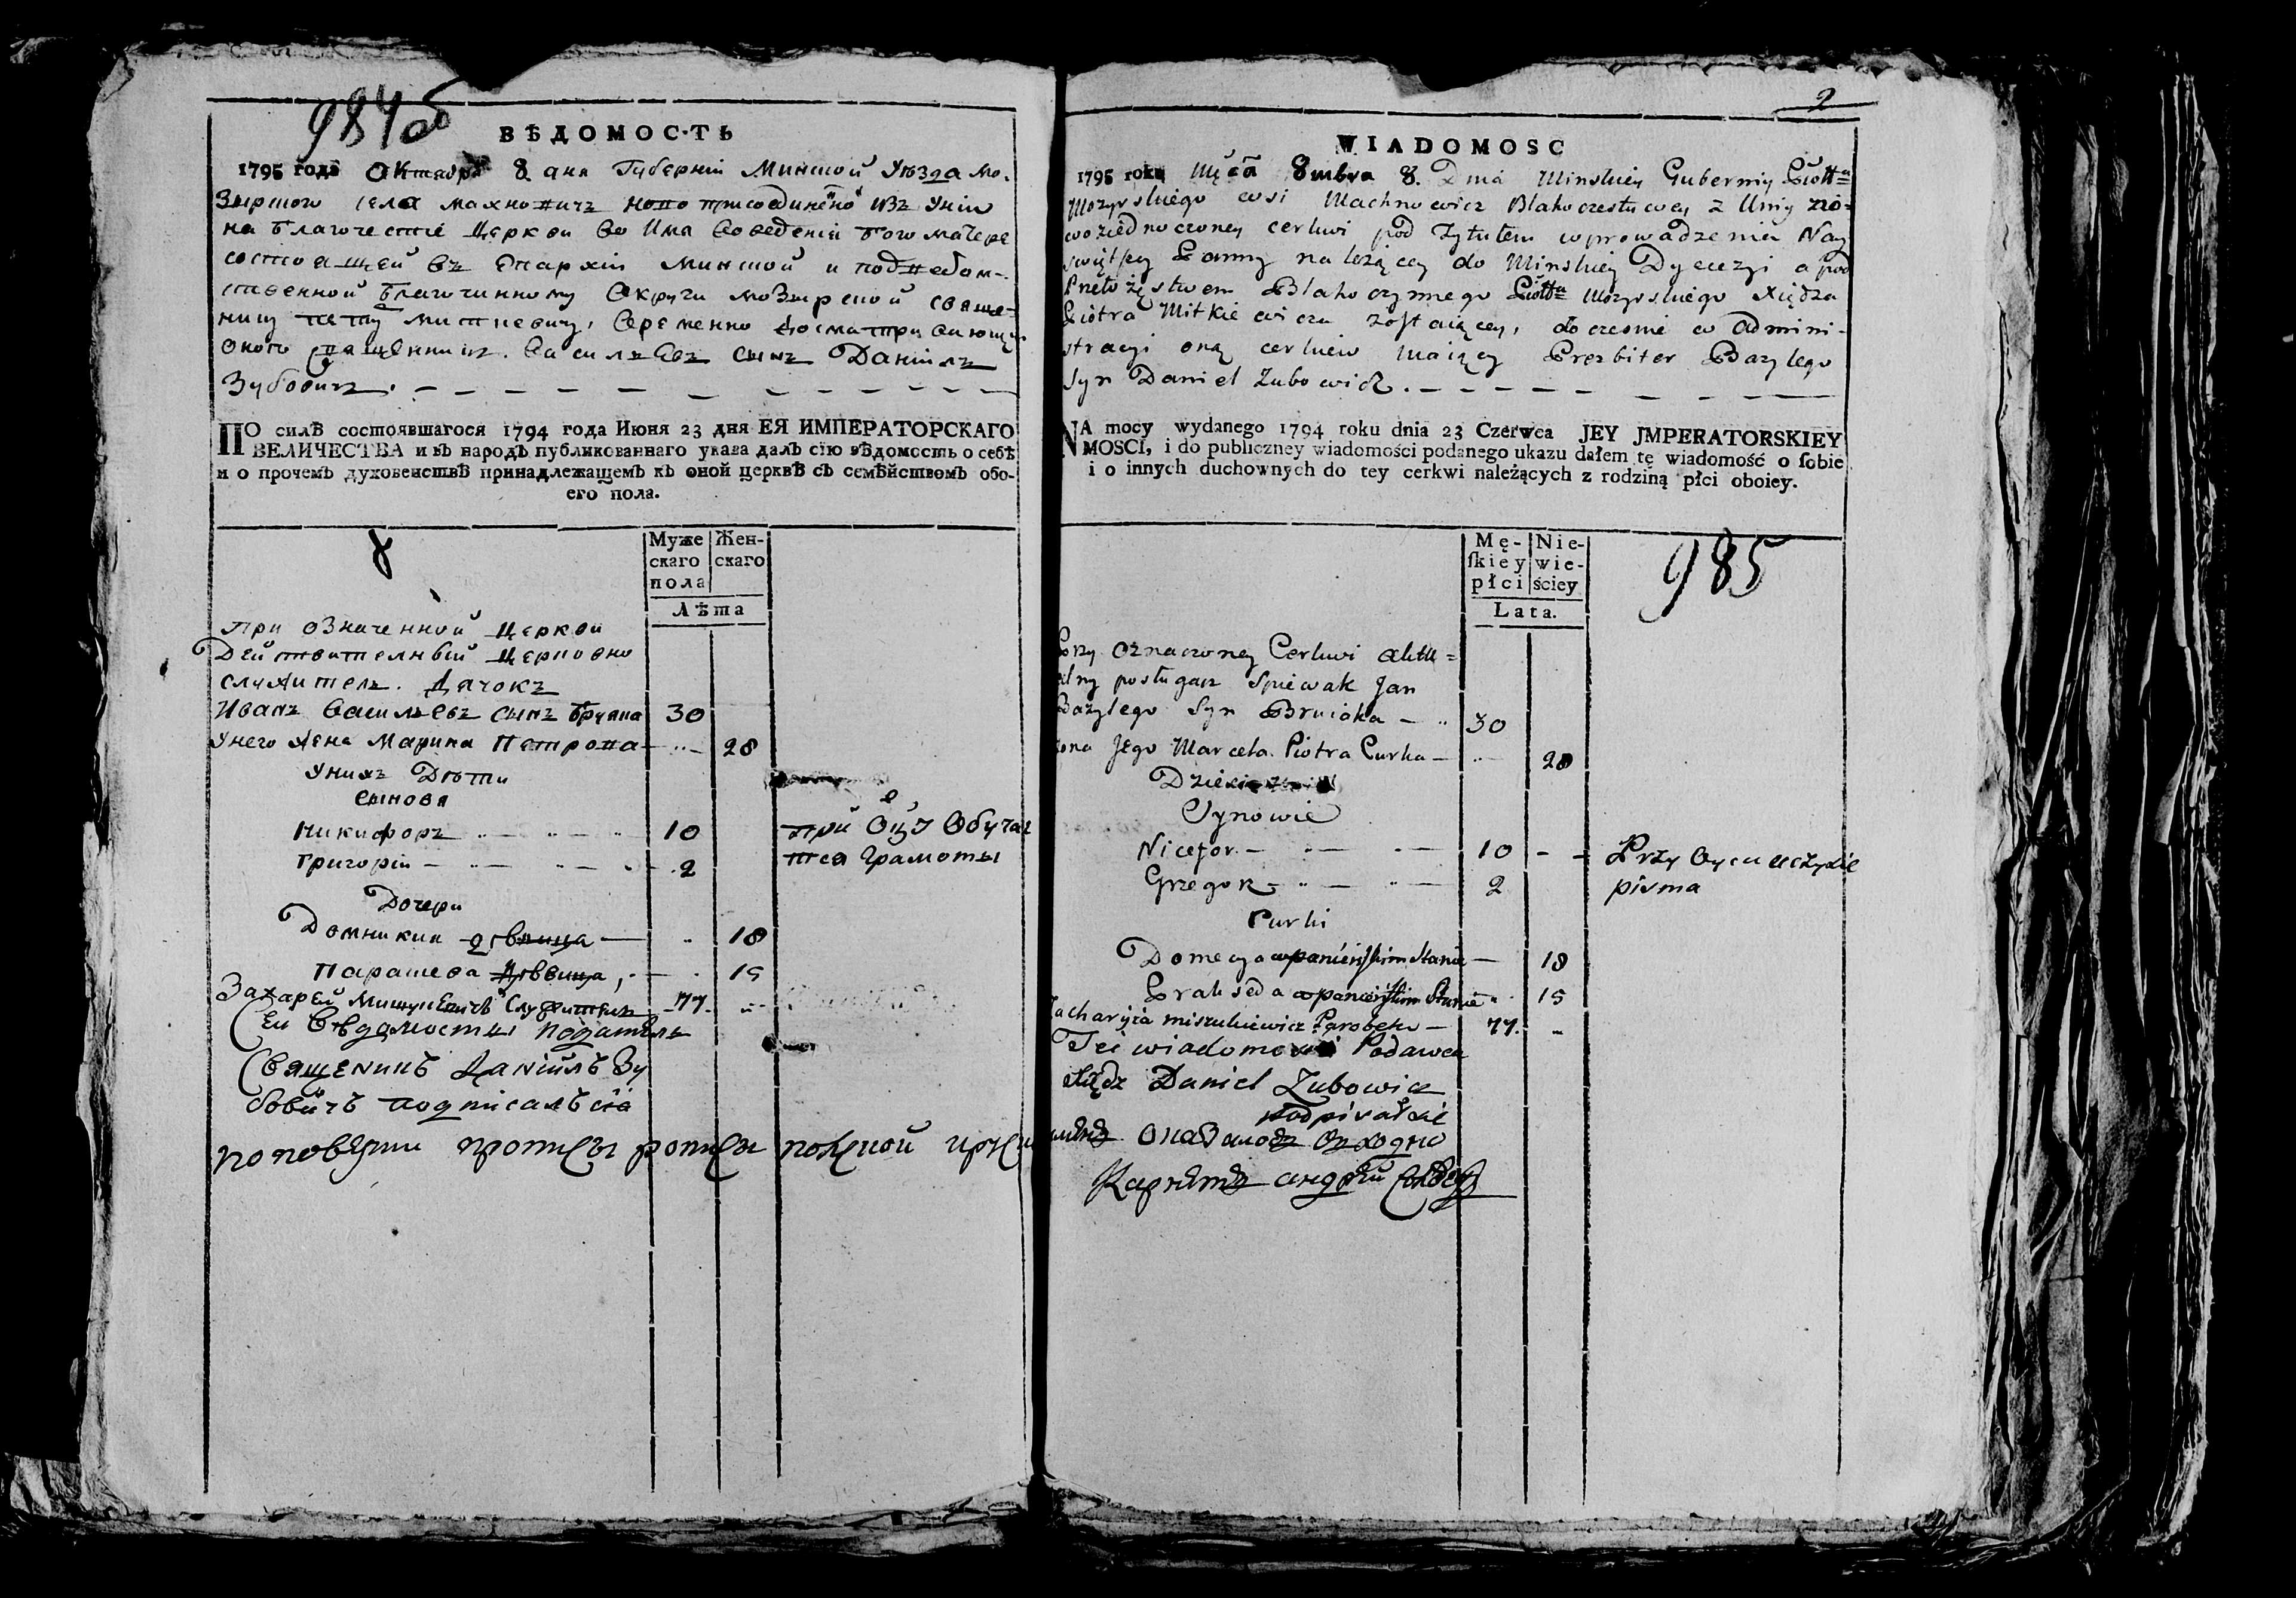 984об
ВѢДОМОСТЬ
1795 года Октабра 8 дня Губернїи Минской Уѣзда Мо-
зырского села Махнович ново присоединеной изъ Унїи
на Благочестїе Церкви во Имя Воведенїя Бого матере
состоящей въ Епархїи Минской и подведом-
ственной Благочинному Округи Мозырской свяще-
нику Петру Миткевичу, Временно досматривающий
оного священникъ. Васильевъ сынъ Данїилъ
Зубовичъ. — — — — — — — — —
ПО силѣ состоявшагося 1794 года Июня 23 дня ЕЯ ИМПЕРАТОРСКАГО
ВЕЛИЧЕСТВА и въ народъ публикованнаго указа далъ сїю вѣдомость о себѣ
и о прочемъ духовенствѣ принадлежащемъ къ оной церквѣ съ семѣйствомъ обо-
его пола.
Муже Жен-
скаго скаго
пола
Лѣта
При означенной Церкви
Действителный Церковно
служитель. Дячокъ
Иванъ Васильевъ сынъ Бруяка 30
Унего жена Марина Петрова — 28
Унихъ Дѣти
сыновя
Никифоръ 10 при Оцу Обучает
Григорїи 2 тся грамоты
Дочери
Домникия дѣвица — 18
Парасцева дѣвица, 15
Захарей Мишукевичъ Служитель 77
Сеи Вѣдомосты податель
Священикъ Данїилъ Зу
бовичъ подписалъ ся
2
WIADOMOSC
1795 roku Mca 8mbra 8. Dnia Minskiey Guberniy Piottu
Mozyrskiego wsi Machnowicz Blahoczestiwey z Uniy no-
wo ziednoczoney cerkwi pod tytułem wprowadzenia Nay
swiętszey Panny należącey do Minskiey Dyecezyi a pod
Przełożęstwem Blahoczynnego Mozyrskiego Xiędza
Piotra Mitkiewicza zostaiącey, doczesnie w Admini-
stracyi oną cerkiew maiący Prezbiter Bazylego
Syn Daniel Zubowicz. — — — — —
NA mocy wydanego 1794 roku dnia 23 Czerwca JEY JMPERATORSKIEY
MOSCI, i do publiczney wiadomości podanego ukazu dałem tę wiadomość o sobie
i o innych duchownych do tey cerkwi należących z rodziną płci oboiey.
Mę- Nie-
skiey wie-
płci ściey
Lata.
985
Przy oznaczoney Cerkwi aktu-
alny posługacz Spiewak Jan
Bazylego Syn Bruiaka — 30
Żona Jego Marcela Piotra Curka — 28
Synowie
Nicefor — 10 — Przy Oycu uczysie
Grzegorz — 2 pisma
Curki
Domecya w panieńskim stanie — 18
Prakseda w panieńskim Stanie 15
Zacharyia Miszukiewicz Parobek — 77.
Tei wiadomości Podawca
Xiądz Daniel Zubowicz
podpisałsie